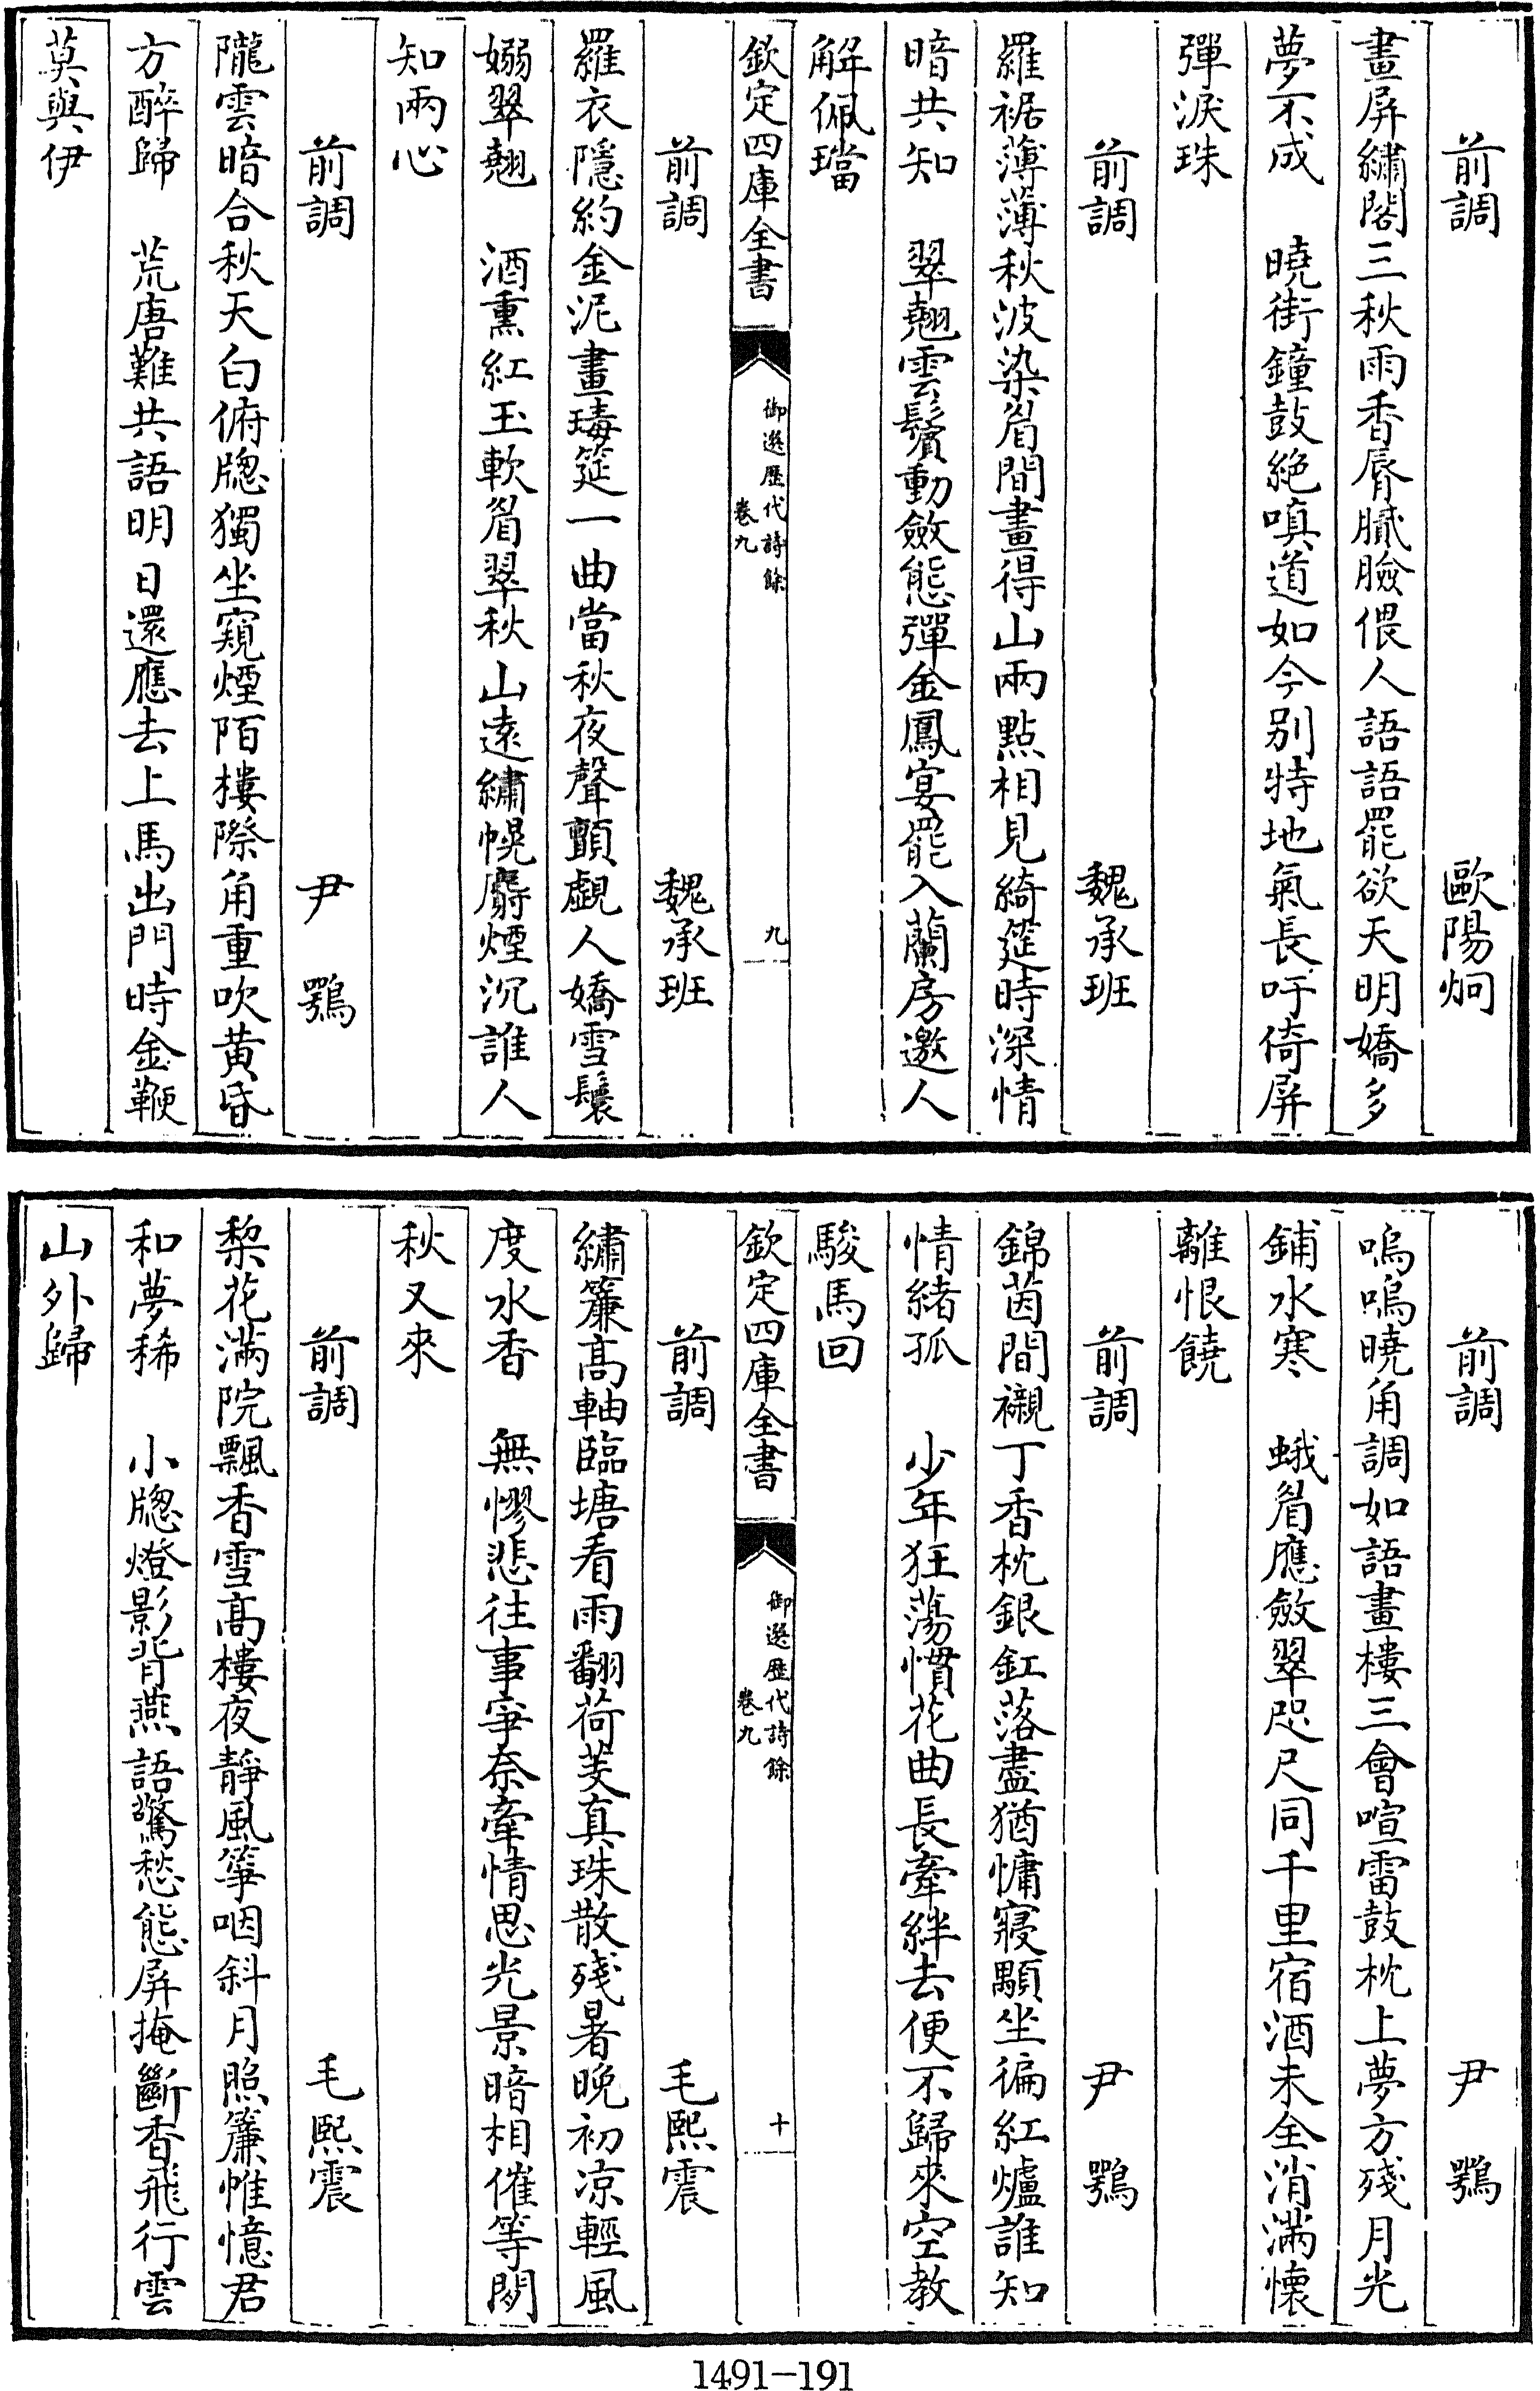 前調　歐陽炯
畫屏繡閣三秋雨香脣膩臉偎人語語罷欲天明嬌多
夢不成　曉街鐘鼓絶嗔道如今别特地氣長吁倚屏
彈淚珠
前調　魏承班
羅裾薄薄秋波染眉間畫得山兩點相見綺筵時深情
暗共知　翠翹雲鬢動斂態彈金鳳宴罷入蘭房邀人
解佩璫
欽定四庫全書
御選歷代詩餘
卷九
九
前調　魏承班
羅衣隱約金泥畫瑇筵一曲當秋夜聲顫覷人嬌雪鬟
嫋翠翹　酒熏紅玉軟眉翠秋山遠繡幌麝煙沉誰人
知兩心
前調　尹鶚
隴雲暗合秋天白俯牕獨坐窺煙陌樓際角重吹黄昏
方醉歸　荒唐難共語明日還應去上馬出門時金鞭
莫與伊
前調　尹鶚
嗚嗚曉角調如語畫樓三會喧雷鼓枕上夢方殘月光
鋪水寒　蛾眉應斂翠咫尺同千里宿酒未全消滿懷
離恨饒
前調　尹鶚
錦茵間襯丁香枕銀釭落盡猶慵寢顒坐徧紅爐誰知
情緒孤　少年狂蕩慣花曲長牽絆去便不歸來空教
駿馬回
欽定四庫全書
御選歷代詩餘
卷九
十
前調　毛熙震
繡簾高軸臨塘看雨翻荷芰真珠散殘暑晚初凉輕風
度水香　無憀悲往事寜奈牽情思光景暗相催等閒
秋又來
前調　毛熙震
梨花滿院飄香雪高樓夜靜風箏咽斜月照簾帷憶君
和夢稀　小牕燈影背燕語驚愁態屏掩斷香飛行雲
山外歸
1491-191